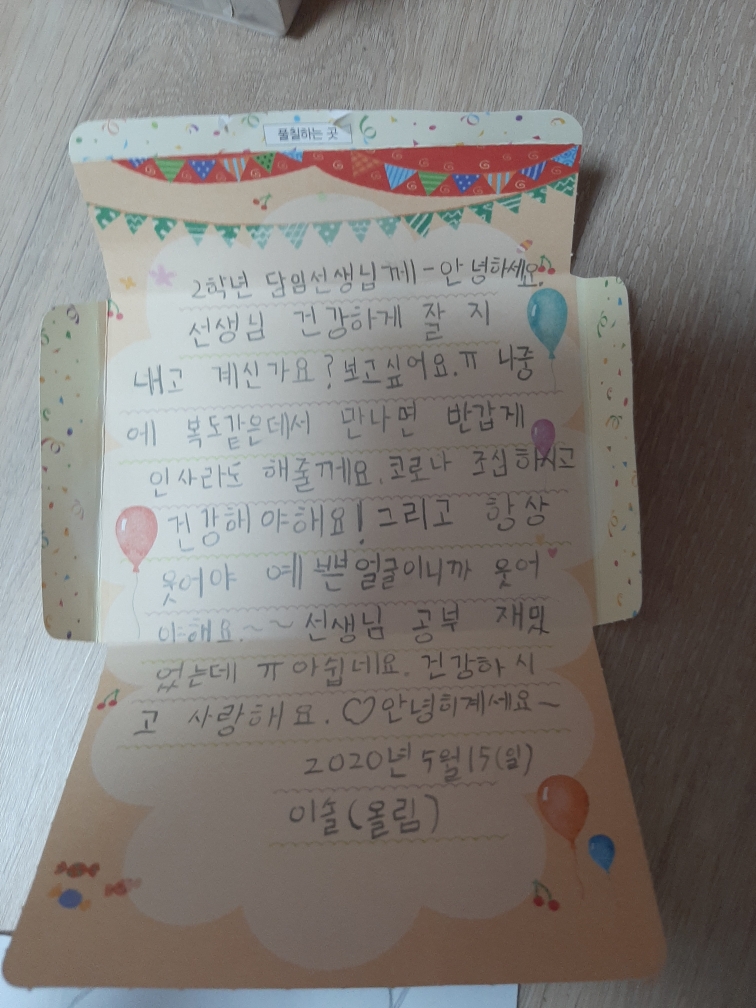 풀칠하는 곳
2학년 담임선생님께-안녕하세요.
선생님 건강하게 잘 지
내고 계신가요? 보고싶어요.ㅠ 나중
에 복도같은데서 만나면 반갑게
인사라도 해줄께요. 코로나 조심하시고
건강해야해요! 그리고 항상
웃어야 예쁜얼굴이니까 웃어
야해요.~~ 선생님 공부 재밌
었는데 ㅠ 아쉽네요. 건강하시
고 사랑해요. ♡안녕히계세요~
2020년 5월 15(일)
이솔(올림)